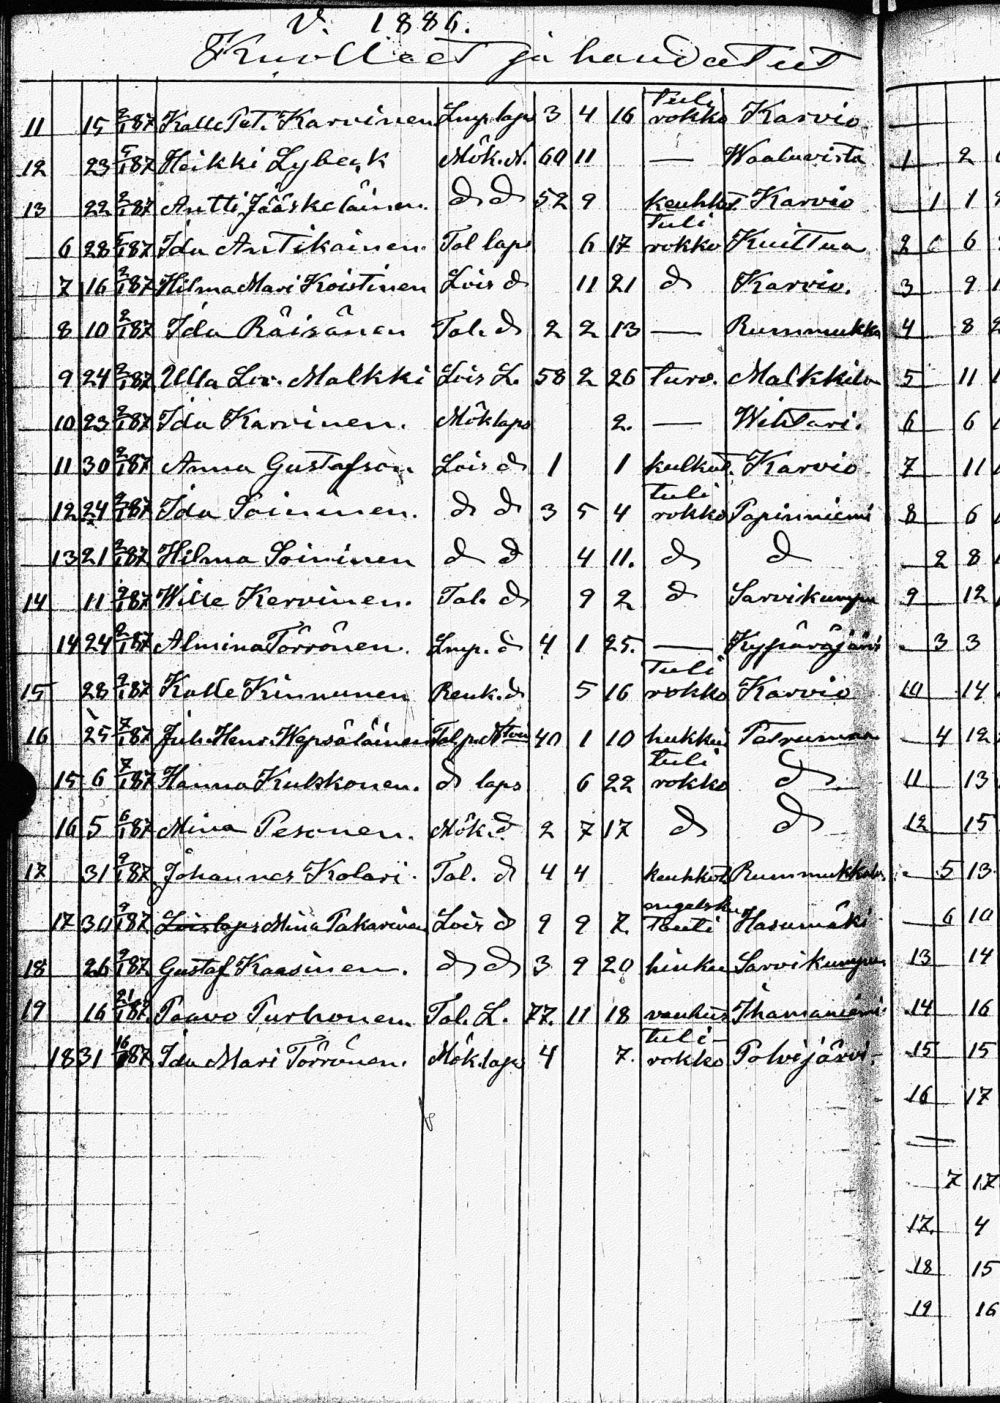 V. 1886.
Kuolleet ja haudatut
11 15 2/1 87 Kalle Pet. Karvinen Lmp laps 3 4 16 tuli rokko Karvio
12 23 87 Heikki Lybeck Mök. M. 60 11 — Waaluvirta
13 22 2/1 87 Antti Jääskeläinen d d 52 9 keuhkot. Karvio
6 28 87 Ida Antikainen Tal laps 6 17 tuli rokko Kuittua
7 16 2/1 87 Hilma Mari Koistinen Lois d 11 21 d Karvio.
8 10 2/1 87 Ida Räisänen Tal. d 2 2 13 — Rummukka
9 24 2/1 87 Ulla Lov. Malkki Lois L. 58 2 26 turv. Malkkila
10 23 2/1 87 Ida Karvinen. Mök laps 2. — Wihtari.
11 30 2/1 87 Anna Gustafson Lois d 1 1 kulkut. Karvio
12 24 2/1 87 Ida Soininen. d d 3 5 4 tuli rokko Papinniemi
13 21 2/1 87 Hilma Soininen d d 4 11. d d
14 11 2/1 87 Wille Kervinen. Tal. d 9 2 d Sarvikumpu
14 24 2/1 87 Almina Törrönen. Lmp. d 4 1 25. — Kypäräjärvi
15 28 2/1 87 Kalle Kinnunen Renk. d 5 16 tuli rokko Karvio
16 25 7/1 87 Juh. Henr. Wepsäläinen Tal p. 40 1 10 hukkui Petrumaa
15 6 7/1 87 Hanna Kulskonen. d laps 6 22 tuli rokko d
16 5 6/1 87 Mina Pesonen. Mök. d 2 7 17 d d
17 31 9/1 87 Johannes Kolari. Tal. d 4 4 keuhkot Rummukkala
17 30 9/1 87 Loislaps Mina Pakarinen Lois d 9 9 7. engelskan tauti Hasumäki
18 26 2/1 87 Gustaf Kaasinen. d d 3 9 20 hinku Sarvikumpu
19 16 21/1 87. Paavo Turhonen Tal. L. 77. 11 18 vanhuus Ihamaniemi
18 31 16/1 87 Ida Mari Törrönen. Mök. laps 4 7. tuli- rokko Polvijärvi.
1 2
1 1
2 6
3 9
4 8
5 11
6 6
7 11
8 6
2 8
9 12
3 3
10 14
4 12
11 13
12 15
5 13
6 10
13 14
14 16
15 15
16 17
7 17
17. 4
18 15
19 16